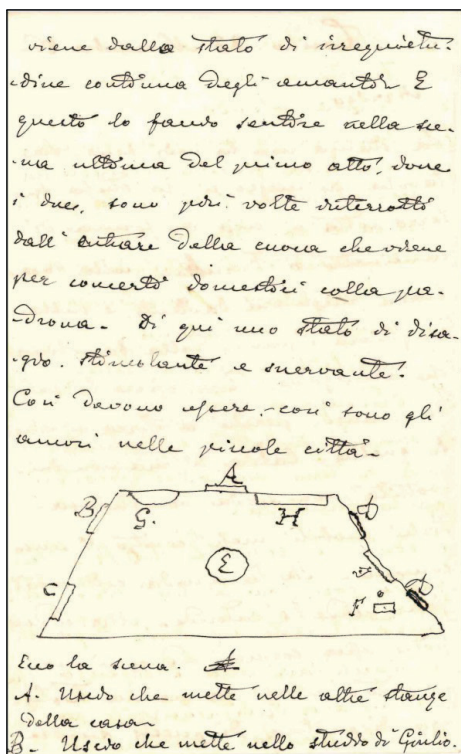 viene dallo stato di irrequietu-
-dine continua degli amanti. E
questo lo faccio sentire nella sce-
-na ultima del primo atto, dove
i due, sono più volte interrotti
dall'entrare della cuoca che viene
per concerti domestici colla pa-
-drona. Di qui uno stato di disa-
-gio. stimolante e snervante.
Così devono essere, così sono gli
amori nelle piccole città.
A
B
G.
H
D
C
E
F
D
Ecco la scena.
A. Uscio che mette nelle altre stanze
della casa
B. Uscio che mette nello studio di Giulio.